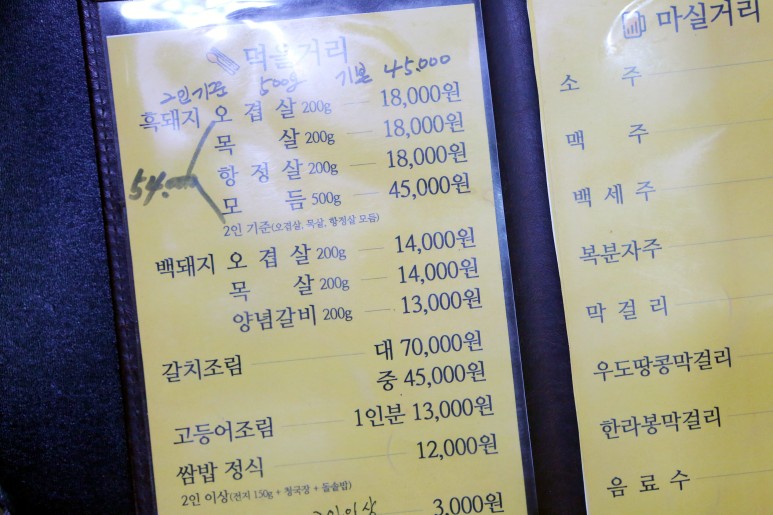 먹을거리
2인기준 500g 기본 45.000
흑돼지 오 겹 살 200g 18,000원
목 살 200g 18,000원
항 정 살 200g 18,000원
54.000
모 듬 500g 45,000원
2인 기준(오겹살, 목살, 항정살 모듬)
백돼지 오 겹 살 200g 14,000원
목 살 200g 14,000원
양념갈비 200g 13,000원
갈치조림 대 70,000원
중 45,000원
고등어조림 1인분 13,000원
쌈밥 정식 12,000원
2인 이상(전지 150g + 청국장 + 돌솥밥)
3,000원
마실거리
소 주
맥 주
백 세 주
복분자주
막 걸 리
우도땅콩막걸리
한라봉막걸리
음 료 수